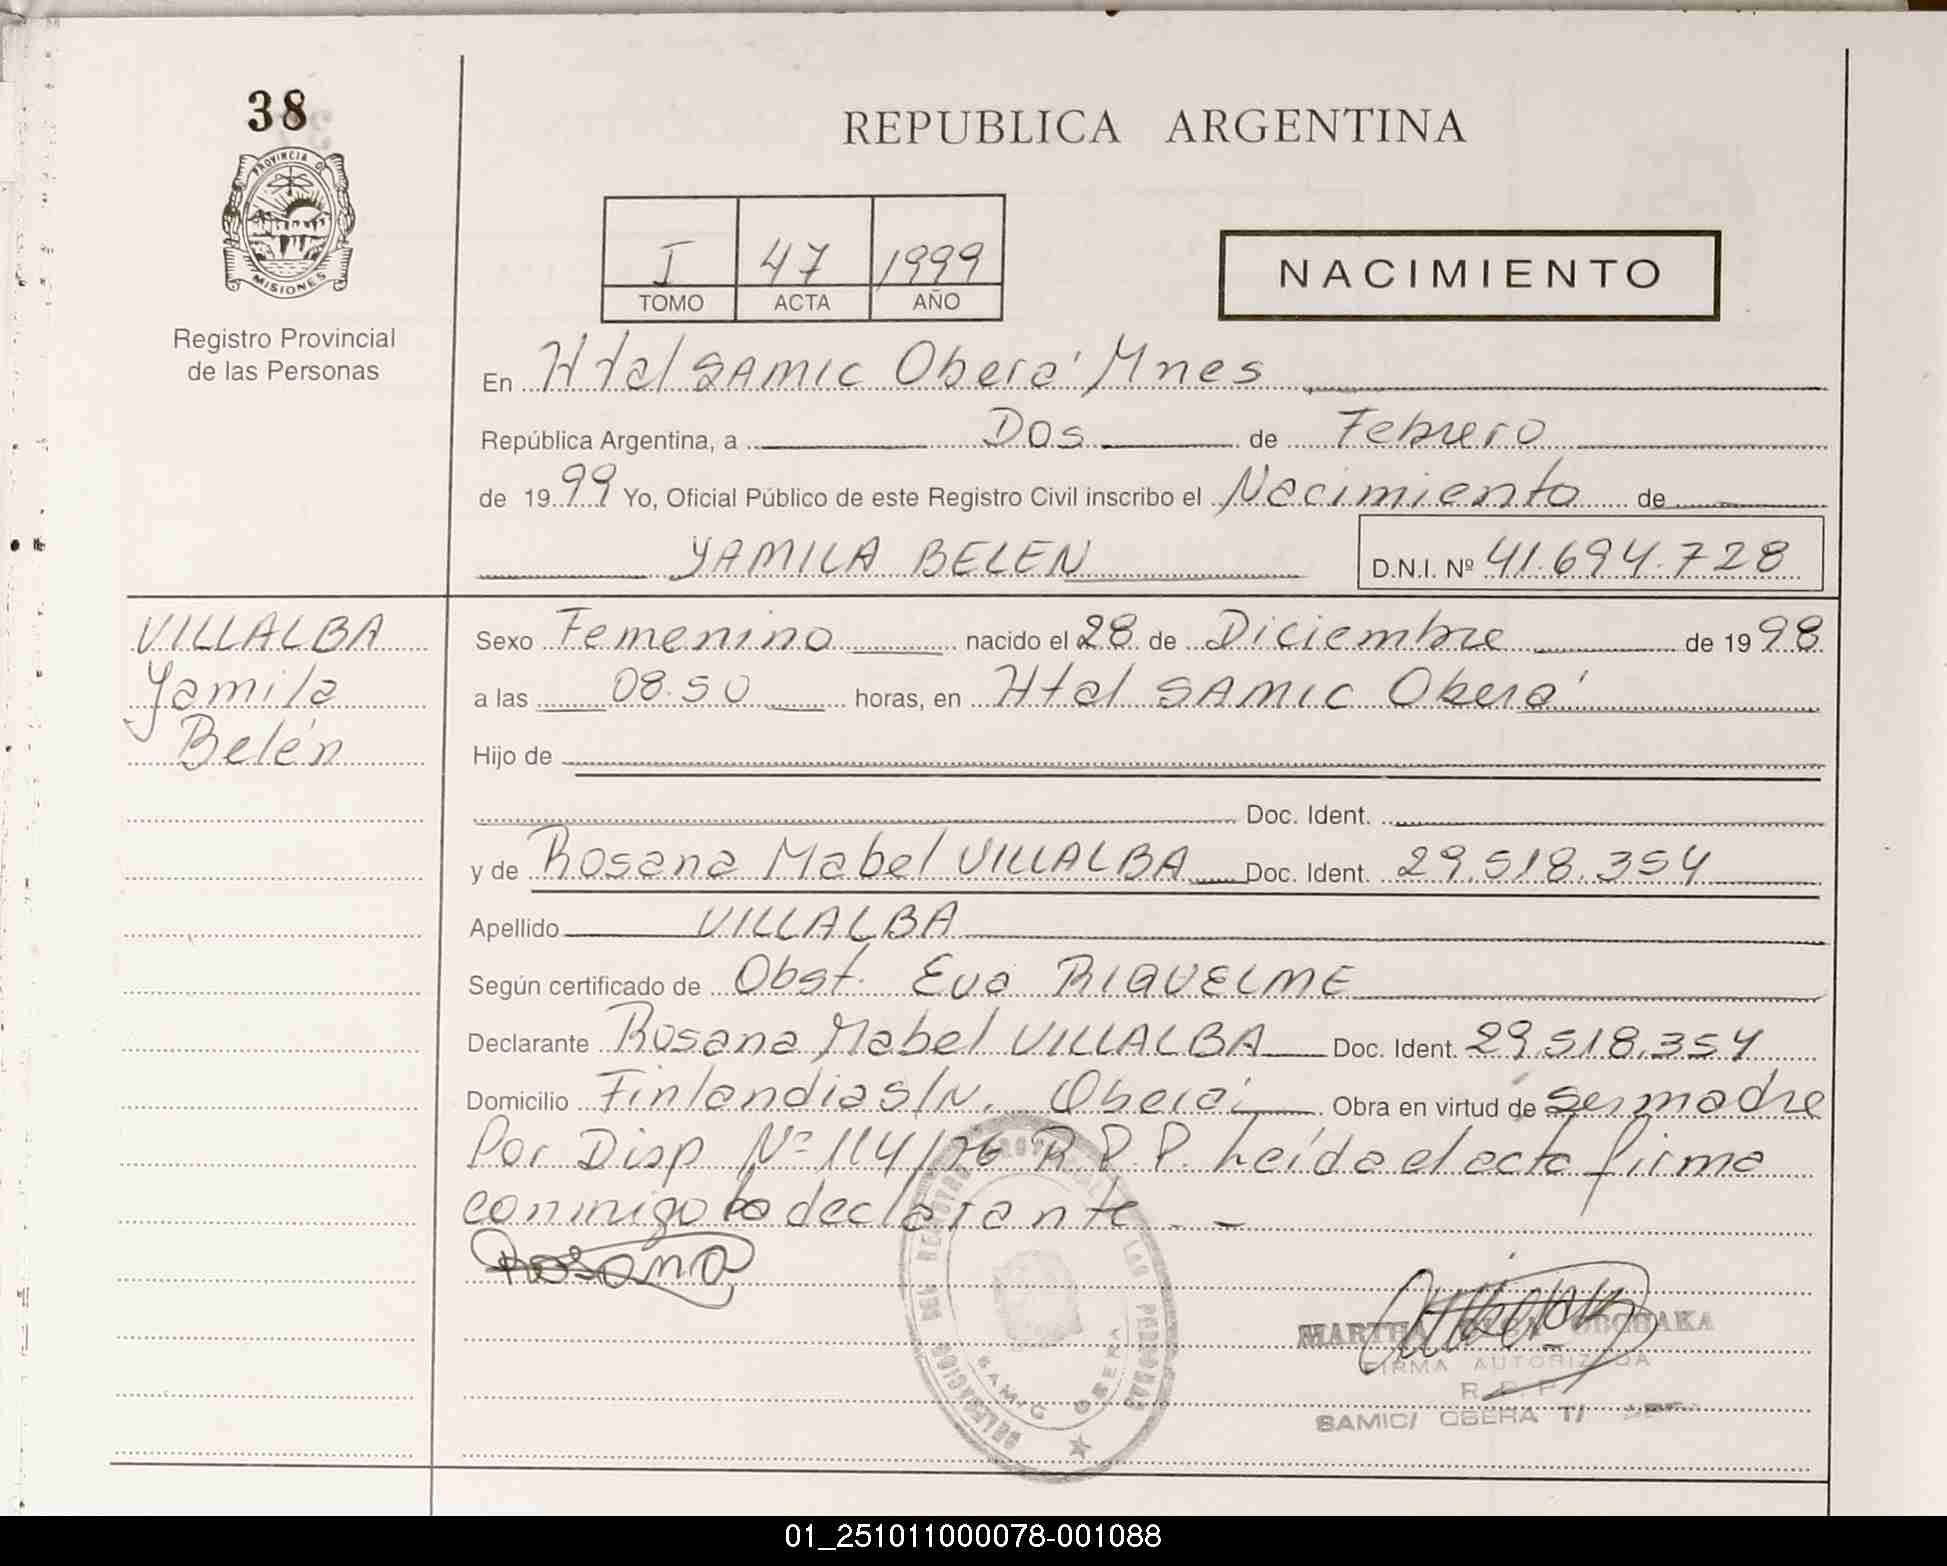 38
REPUBLICA ARGENTINA
PROVINCIA D
MISIONES
Registro Provincial
de las Personas
I 47 1999
TOMO ACTA AÑO
NACIMIENTO
En Htal SAMIC Oberá Mnes
República Argentina, a Dos de Febrero
de 1999 Yo, Oficial Público de este Registro Civil inscribo el Nacimiento de
YAMILA BELEN D.N.I. Nº 41.694.728
VILLALBA
Yamila
Belén
Sexo Femenino nacido el 28 de Diciembre de 1998
a las 08.50 horas, en Htal SAMIC Oberá
Hijo de
Doc. Ident.
y de Rosana Mabel VILLALBA Doc. Ident. 29.518.354
Apellido VILLALBA
Según certificado de Obst. Eva RIQUELME
Declarante Rosana Mabel VILLALBA Doc. Ident. 29.518.354
Domicilio Finlandia S/N. Oberá Obra en virtud de ser madre
Por Disp Nº 114/76 R.P.P. Leída el acta firma
conmigo la declarante. -
Rosana
DELEGACION DEL REGISTRO PROVINCIAL LAS PERSONAS
SAMIC OBERA
MARTHA
FIRMA AUTORIZADA
R.P.P
SAMIC/ OBERA T/
01_251011000078-001088